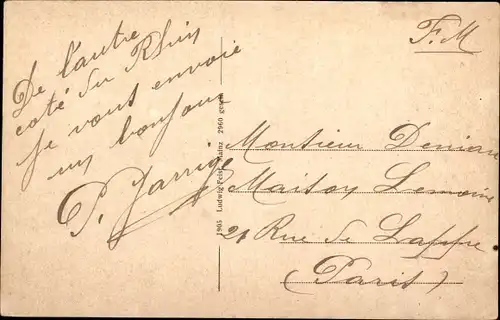 De l'autre
coté du Rhin
je vous envoie
un bonjour
P. Jarrige
1905 Ludwig Feist, Mainz 2960 gesch
F. M
Monsieur Deniau
Maison Lemoine
21 Rue de Lappe
(Paris)